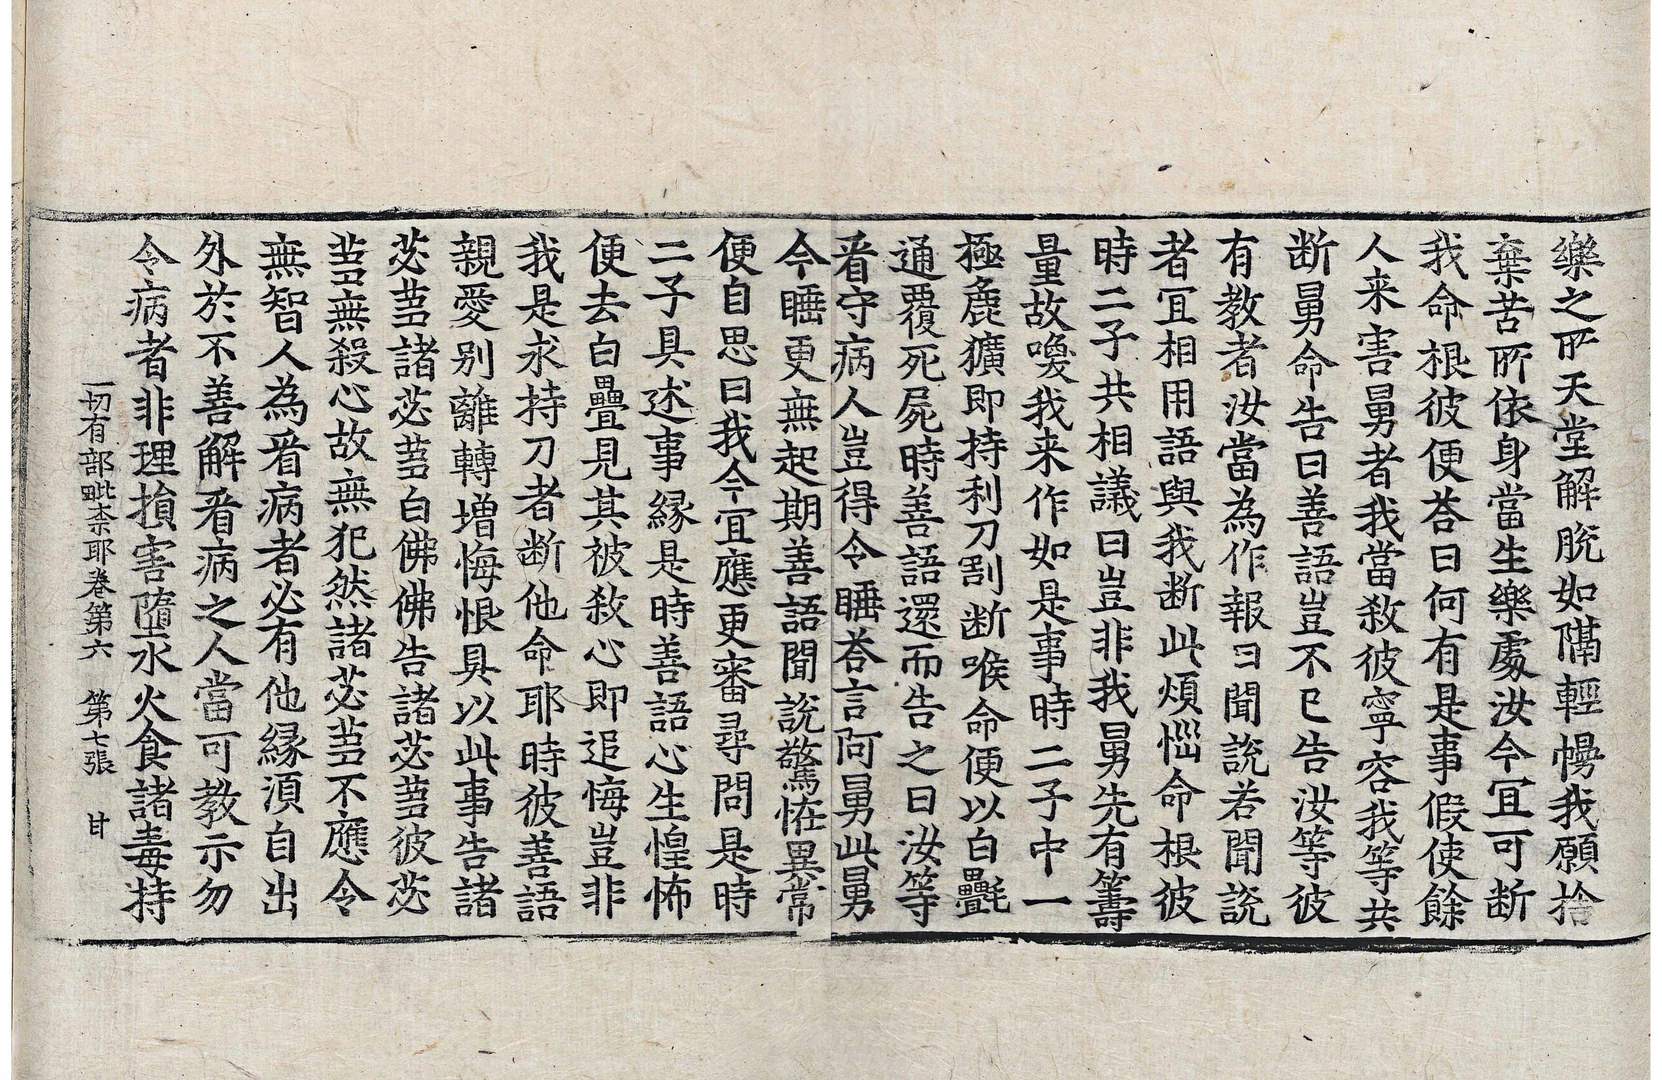 樂之所天堂解脫如隔輕幔我願捨
棄苦所依身當生樂處汝今冝可断
我命根彼便荅曰何有是事假使餘
人来害舅者我當殺彼寧容我等共
断舅命告曰善語豈不已告汝等彼
有教者汝當為作報曰聞說若聞說
者冝相用語與我断此煩惱命根彼
時二子共相議曰豈非我舅先有籌
量故喚我来作如是事時二子中一
極麁獷即持利刀割断喉命便以白㲲
通覆死屍時善語還而告之曰汝等
看守病人豈得令睡荅言阿舅此舅
今睡更無起期善語聞說驚恠異常
便自思曰我今冝應更審尋問是時
二子具述事緣是時善語心生惶怖
便去白疊見其被敎心即追悔豈非
我是求持刀者断他命耶時彼善語
親愛别離轉増悔恨具以此事告諸
苾芻諸苾芻白佛佛告諸苾芻彼苾
芻無殺心故無犯然諸苾芻不應令
無智人為看病者必有他緣湏自出
外於不善解看病之人當可教示勿
令病者非理損害墮水火食諸毒持
一切有部毗柰耶卷第六　第七張　甘